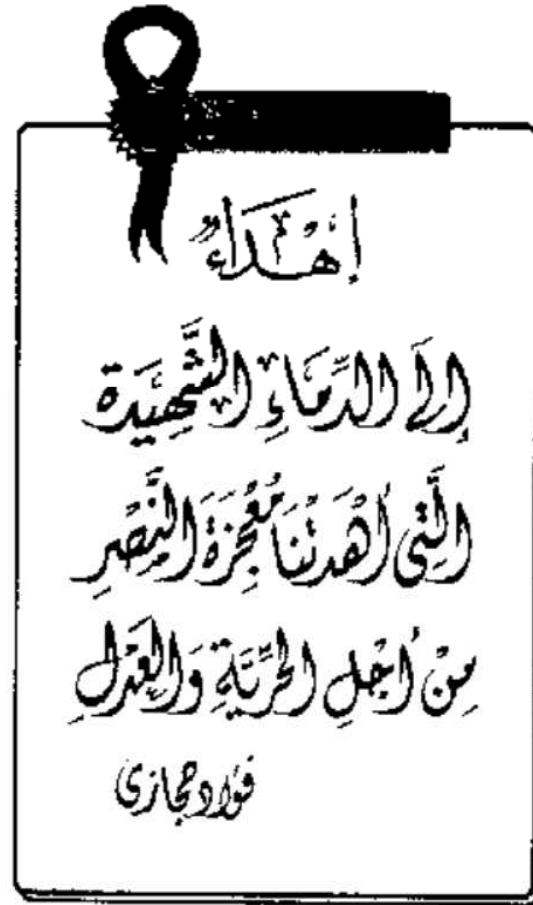 إهْدَاءٌ
إِلَى الدِّمَاءِ الشَّهِيدَة
الَّتِى أَهْدَتْنَا مُعْجِزَةَ النَّصْرِ
مِنْ أَجْلِ الحُرِّيَّةِ وَالعَدْلِ
فؤاد حجازى